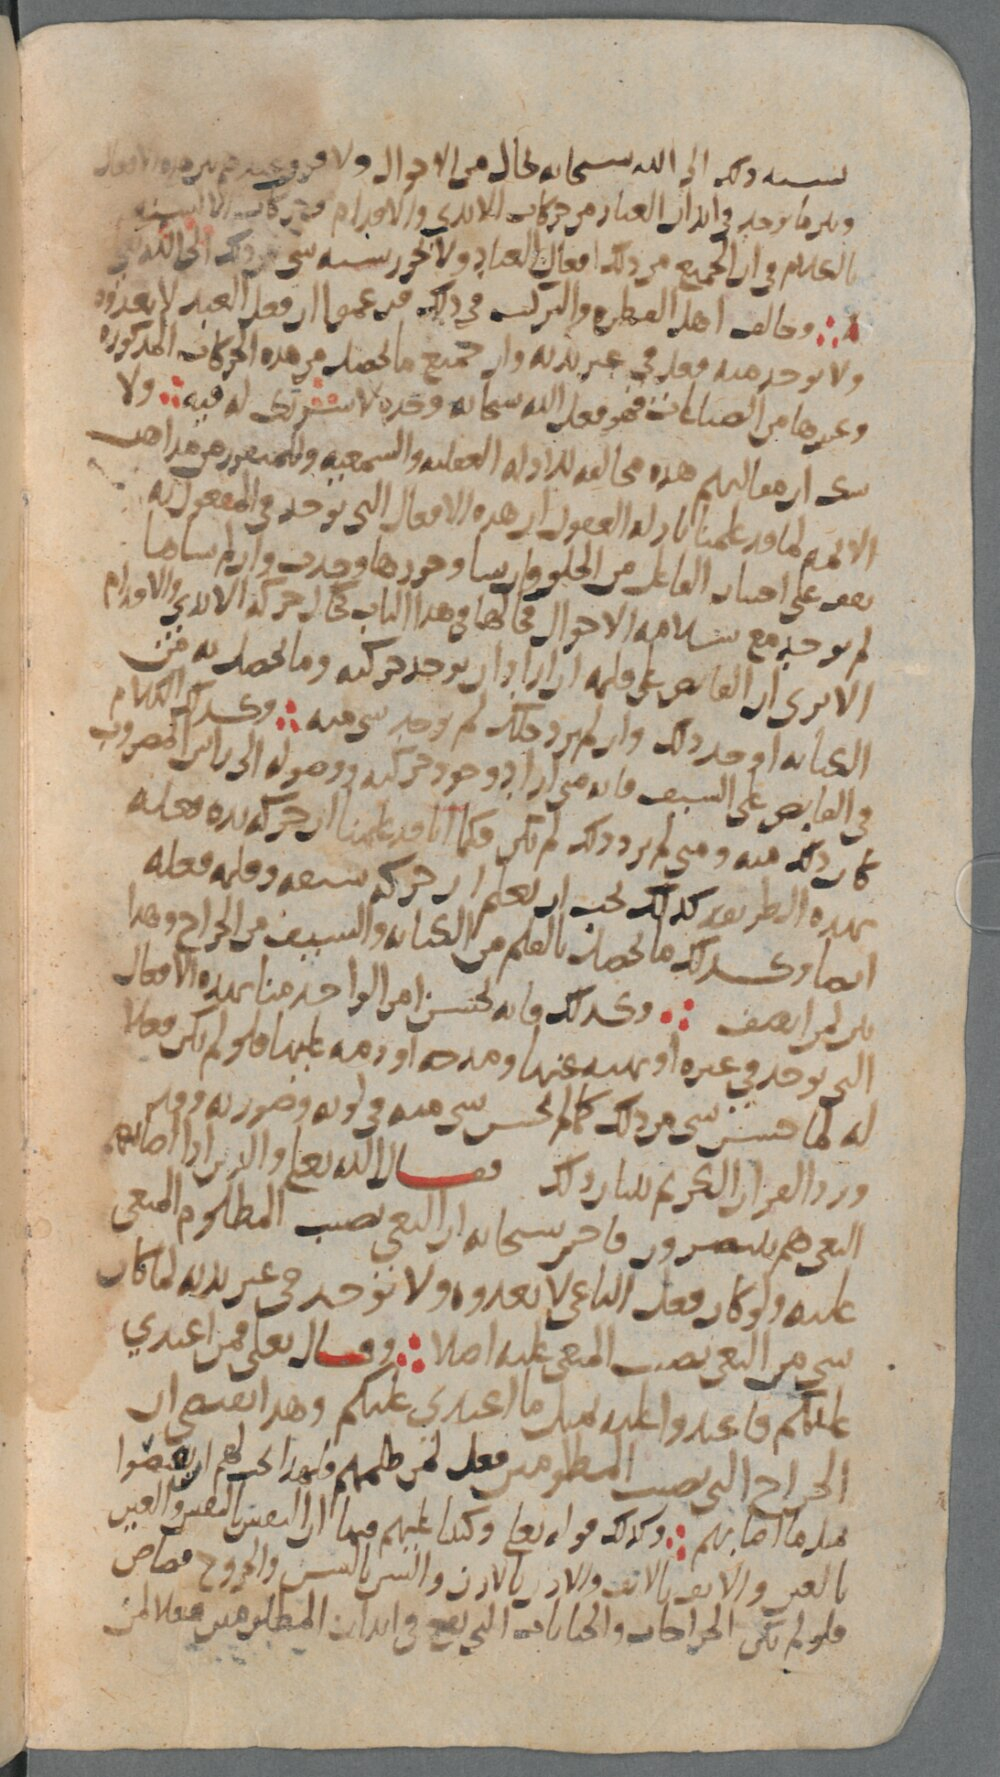 نسبة ذلك الى الله سبحانه بحال من الاحوال ولا فرق عندهم بين هذه الافعال
وبين ما يوجد في ابدان العباد من حركات الايدي والاقدام وحركات الالسنة
بالكلام في ان الجميع من ذلك افعال العباد ولا يجوز نسبة شي من ذلك الى الله تعالى
وخالف اهل الفطرة والتركيب في ذلك فزعموا ان فعل العبد لا يعدوه
ولا يوجد منه فعل في غير بدنه وان جميع ما يحصل من هذه الحركات المذكورة
وغيرها من الصناعات فهو فعل الله سبحانه وحده لا شريك له فيه ولا
شك ان مقالتهم هذه مخالفة للادلة العقلية والسمعية وللمتقرر من مذاهب
الائمة لما قد علمنا بادلة العقول ان هذه الافعال التي توجد في المفعول به
يقف على اختيار الفاعل من المخلوقين ان شا وجودها وجدت وان لم يشاها
لم توجد مع سلامة الاحوال فحالها في هذا الباب كحال حركة الايدي والاقدام
الا ترى ان القابض على قلمه ان اراد ان يوجد حركته وما يحصل به من
الكتابة اوجد ذلك وان لم يرد ذلك لم يوجد شي منه وكذلك الكلام
في القابض على السيف فانه متى اراد وجود حركته ووصوله الى راس المضروب
كان ذلك منه ومتى لم يرد ذلك لم يكن فكما انا قد علمنا ان حركة يده فعله
بهذه الطريقة كذلك يجب ان نعلم ان حركة سيفه وقلمه فعله
ايضا وكذلك ما يحصل بالقلم من الكتابة والسيف من الجراح وهذا
بين لمن انصف وكذلك فانه يحسن امر الواحد منا بهذه الافعال
التي توجد في غيره او نهيه عنها ومدحه او ذمه عليها فلو لم يكن فعلا
له لما حسن شي من ذلك كما لم يحسن شي منه في لونه وصورته وقد
ورد القران الكريم ببيان ذلك فقال الله تعالى والذين اذا اصابهم
البغي هم ينتصرون فاخبر سبحانه ان البغي يصيب المظلوم المبغي
عليه ولو كان فعل الباغي لا يعدوه ولا يوجد في غير بدنه لما كان
شي من البغي يصيب المبغي عليه اصلا وقال تعالى فمن اعتدي
عليكم فاعتدوا عليه بمثل ما اعتدي عليكم وهذا يقتضي ان
الجراح التي تصيب المظلومين فعل لمن ظلمهم ولهذا يجب لهم ان يقتصوا
مثل ما اصابهم وكذلك قوله تعالى وكتبنا عليهم فيها ان النفس بالنفس والعين
بالعين والانف بالانف والاذن بالاذن والسن بالسن والجروح قصاص
فلو لم تكن الجراحات والجنايات التي تقع في ابدان المظلومين فعلا لمن